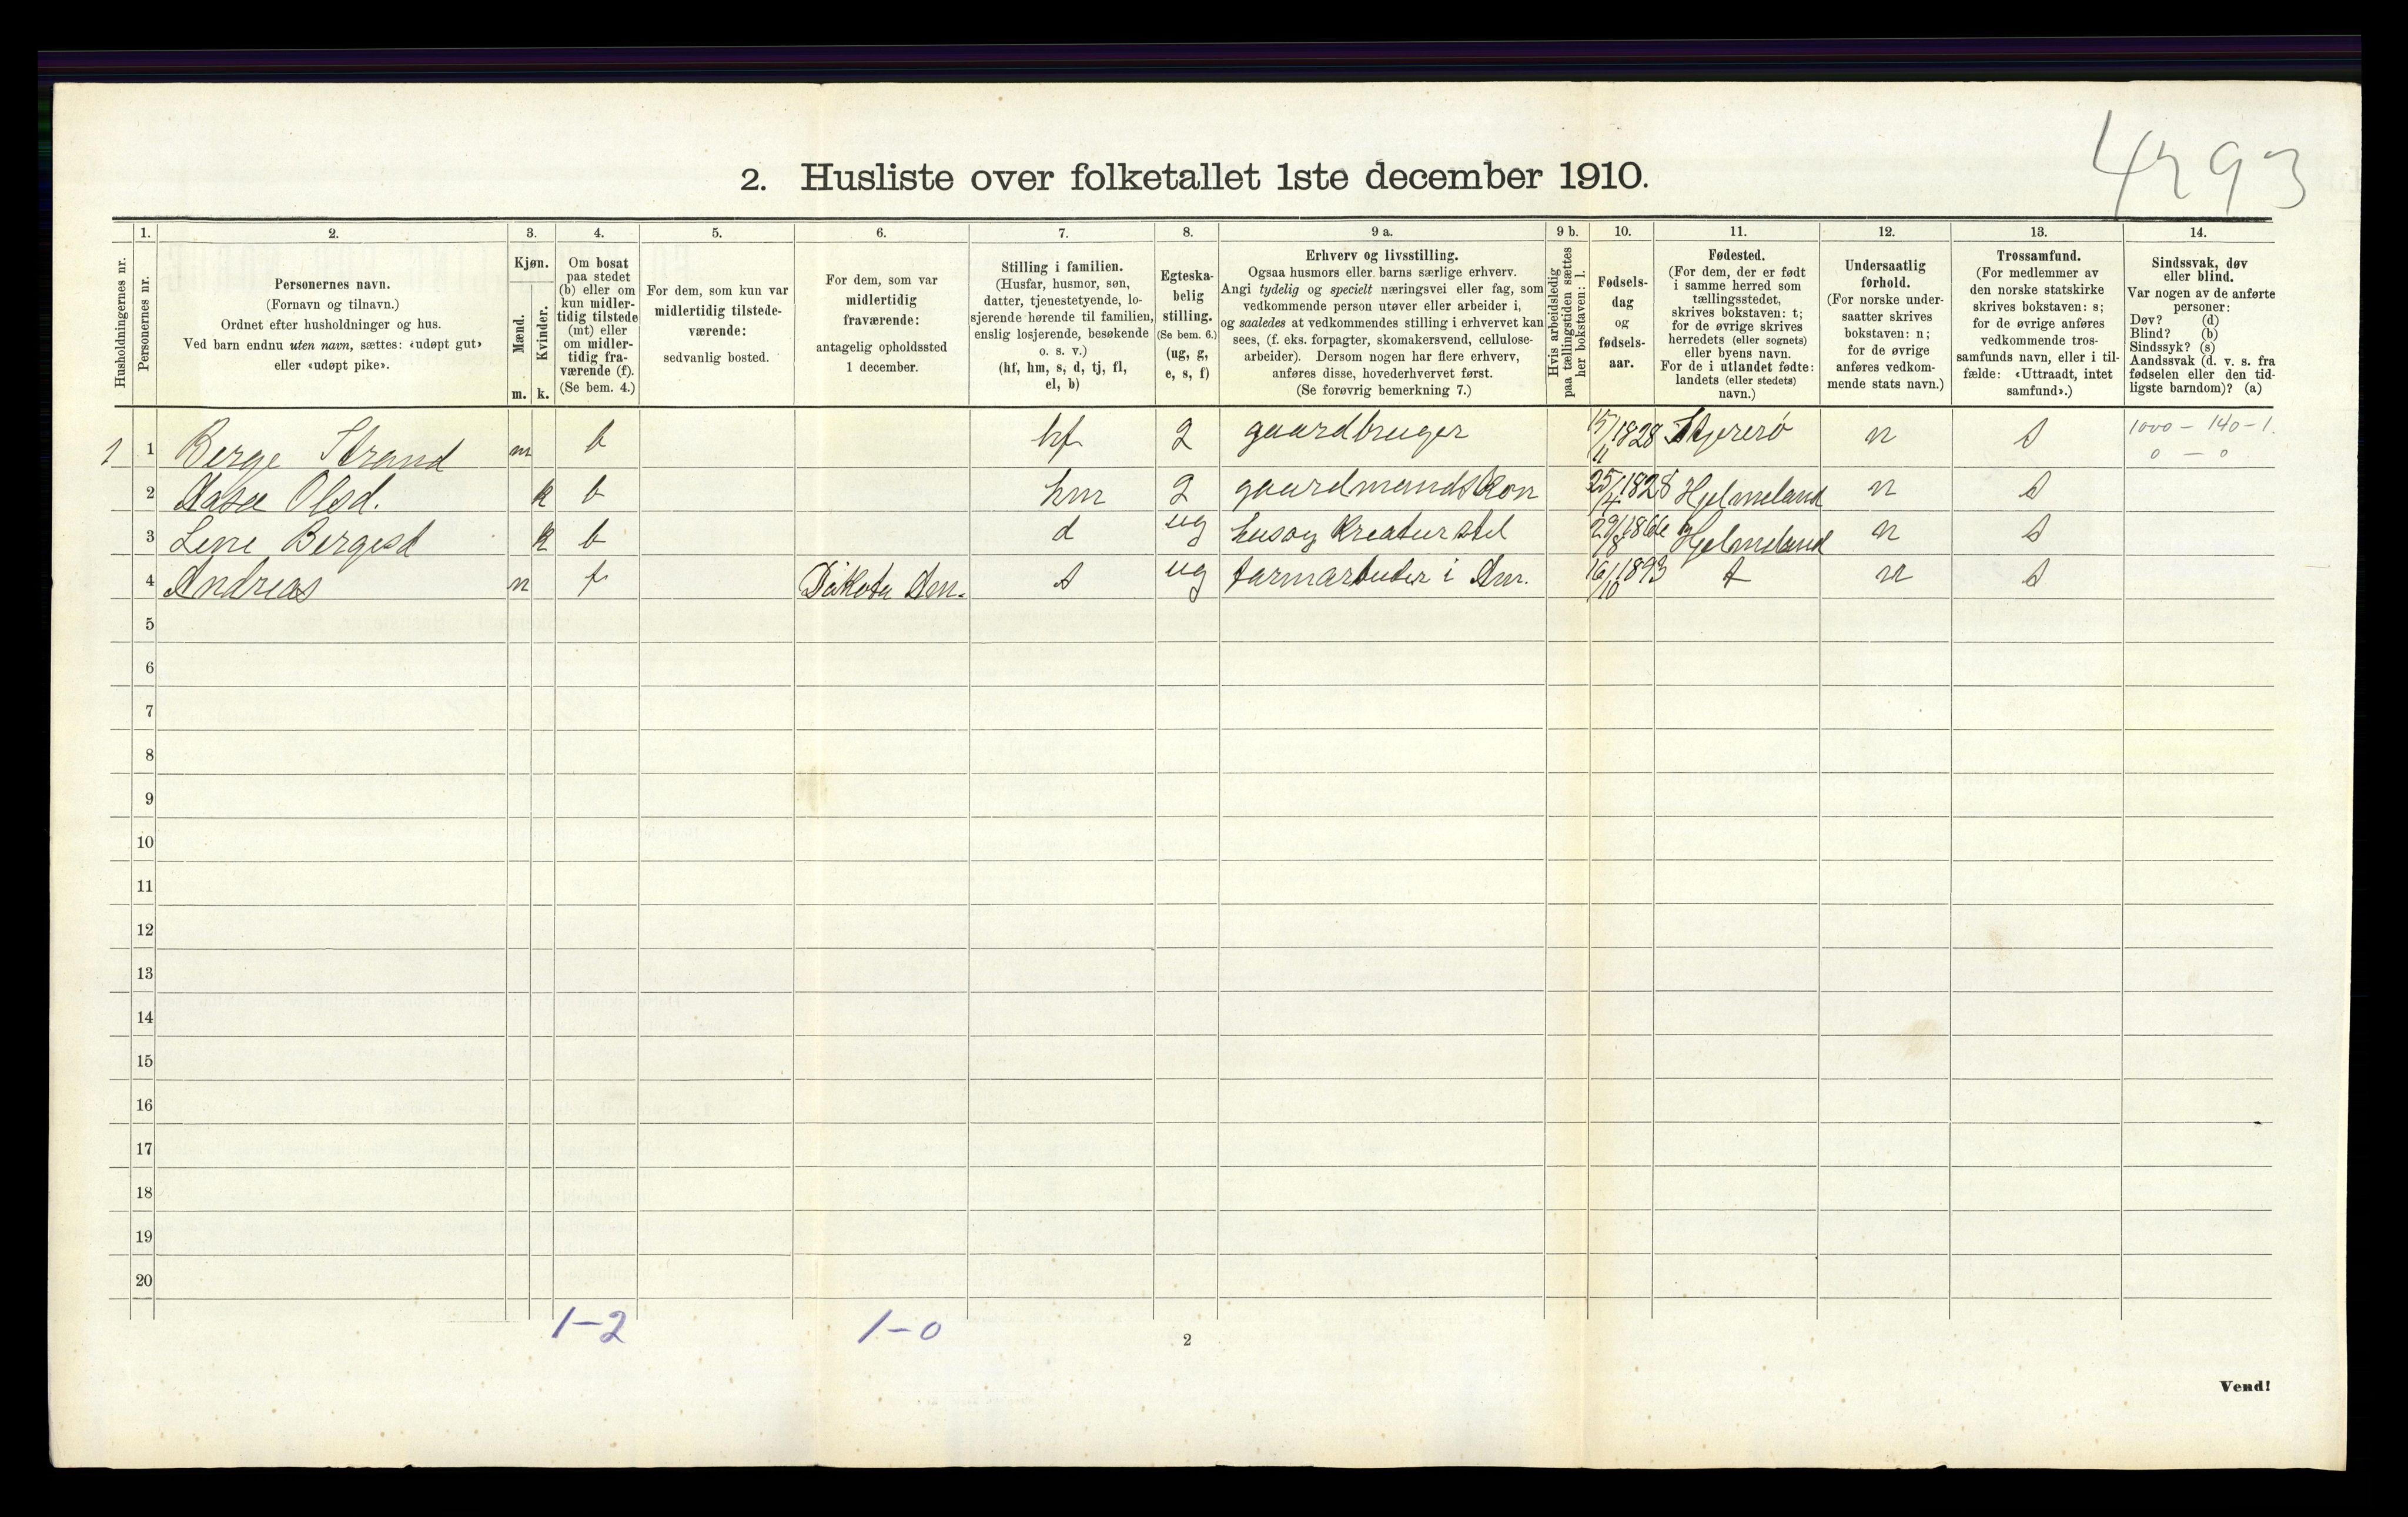 4293
2. Husliste over folketallet 1ste december 1910.
Husholdningernes nr.
1.
Personernes nr.
2.
Personernes navn.
(Fornavn og tilnavn.)
Ordnet efter husholdninger og hus.
Ved barn endnu uten navn, sættes: «udøpt gut»
eller «udøpt pike».
3.
Kjøn.
Mænd.
m.
Kvinder.
k.
4.
Om bosat
paa stedet
(b) eller om
kun midler-
tidig tilstede
(mt) eller
om midler-
tidig fra-
værende (f).
(Se bem. 4.)
5.
For dem, som kun var
midlertidig tilstede-
værende:
sedvanlig bosted.
6.
For dem, som var
midlertidig
fraværende:
antagelig opholdssted
1 december.
7.
Stilling i familien.
(Husfar, husmor, søn,
datter, tjenestetyende, lo-
sjerende hørende til familien,
enslig losjerende, besøkende
o. s. v.)
(hf, hm, s, d, tj, fl,
el, b)
8.
Egteska-
belig
stilling.
(Se bem. 6.)
(ug, g,
e, s, f)
9 a.
Erhverv og livsstilling.
Ogsaa husmors eller barns særlige erhverv.
Angi tydelig og specielt næringsvei eller fag, som
vedkommende person utøver eller arbeider i,
og saaledes at vedkommendes stilling i erhvervet kan
sees, (f. eks. forpagter, skomakersvend, cellulose-
arbeider). Dersom nogen har flere erhverv,
anføres disse, hovederhvervet først.
(Se forøvrig bemerkning 7.)
9 b.
Hvis arbeidsledig
paa tællingstiden sættes
her bokstaven: l.
10.
Fødsels-
dag
og
fødsels-
aar.
11.
Fødested.
(For dem, der er født
i samme herred som
tællingsstedet,
skrives bokstaven: t;
for de øvrige skrives
herredets (eller sognets)
eller byens navn.
For de i utlandet fødte:
landets (eller stedets)
navn.)
12.
Undersaatlig
forhold.
(For norske under-
saatter skrives
bokstaven: n;
for de øvrige
anføres vedkom-
mende stats navn.)
13.
Trossamfund.
(For medlemmer av
den norske statskirke
skrives bokstaven: s;
for de øvrige anføres
vedkommende tros-
samfunds navn, eller i til-
fælde: «Uttraadt, intet
samfund».)
14.
Sindssvak, døv
eller blind.
Var nogen av de anførte
personer:
Døv? (d)
Blind? (b)
Sindssyk? (s)
Aandssvak (d. v. s. fra
fødselen eller den tid-
ligste barndom)? (a)
1 1 Berge Strand m b hf g gaardbruger 15/11 1828 Stjererø n s 1000 - 140 - 1.
0 - 0
2 Aasa Olsd. k b hm g gaardmandskon 25/4 1828 Hjelmeland n s
3 Lene Bergesd k b d ug husog Kreaturstel 29/8 1866 Hjelmeland n s
4 Andreas m f Dakota Am. s ug farmarbeider i Am. 16/10 1893 t n s
5
6
7
8
9
10
11
12
13
14
15
16
17
18
19
20
1-2 1-0
2
Vend!